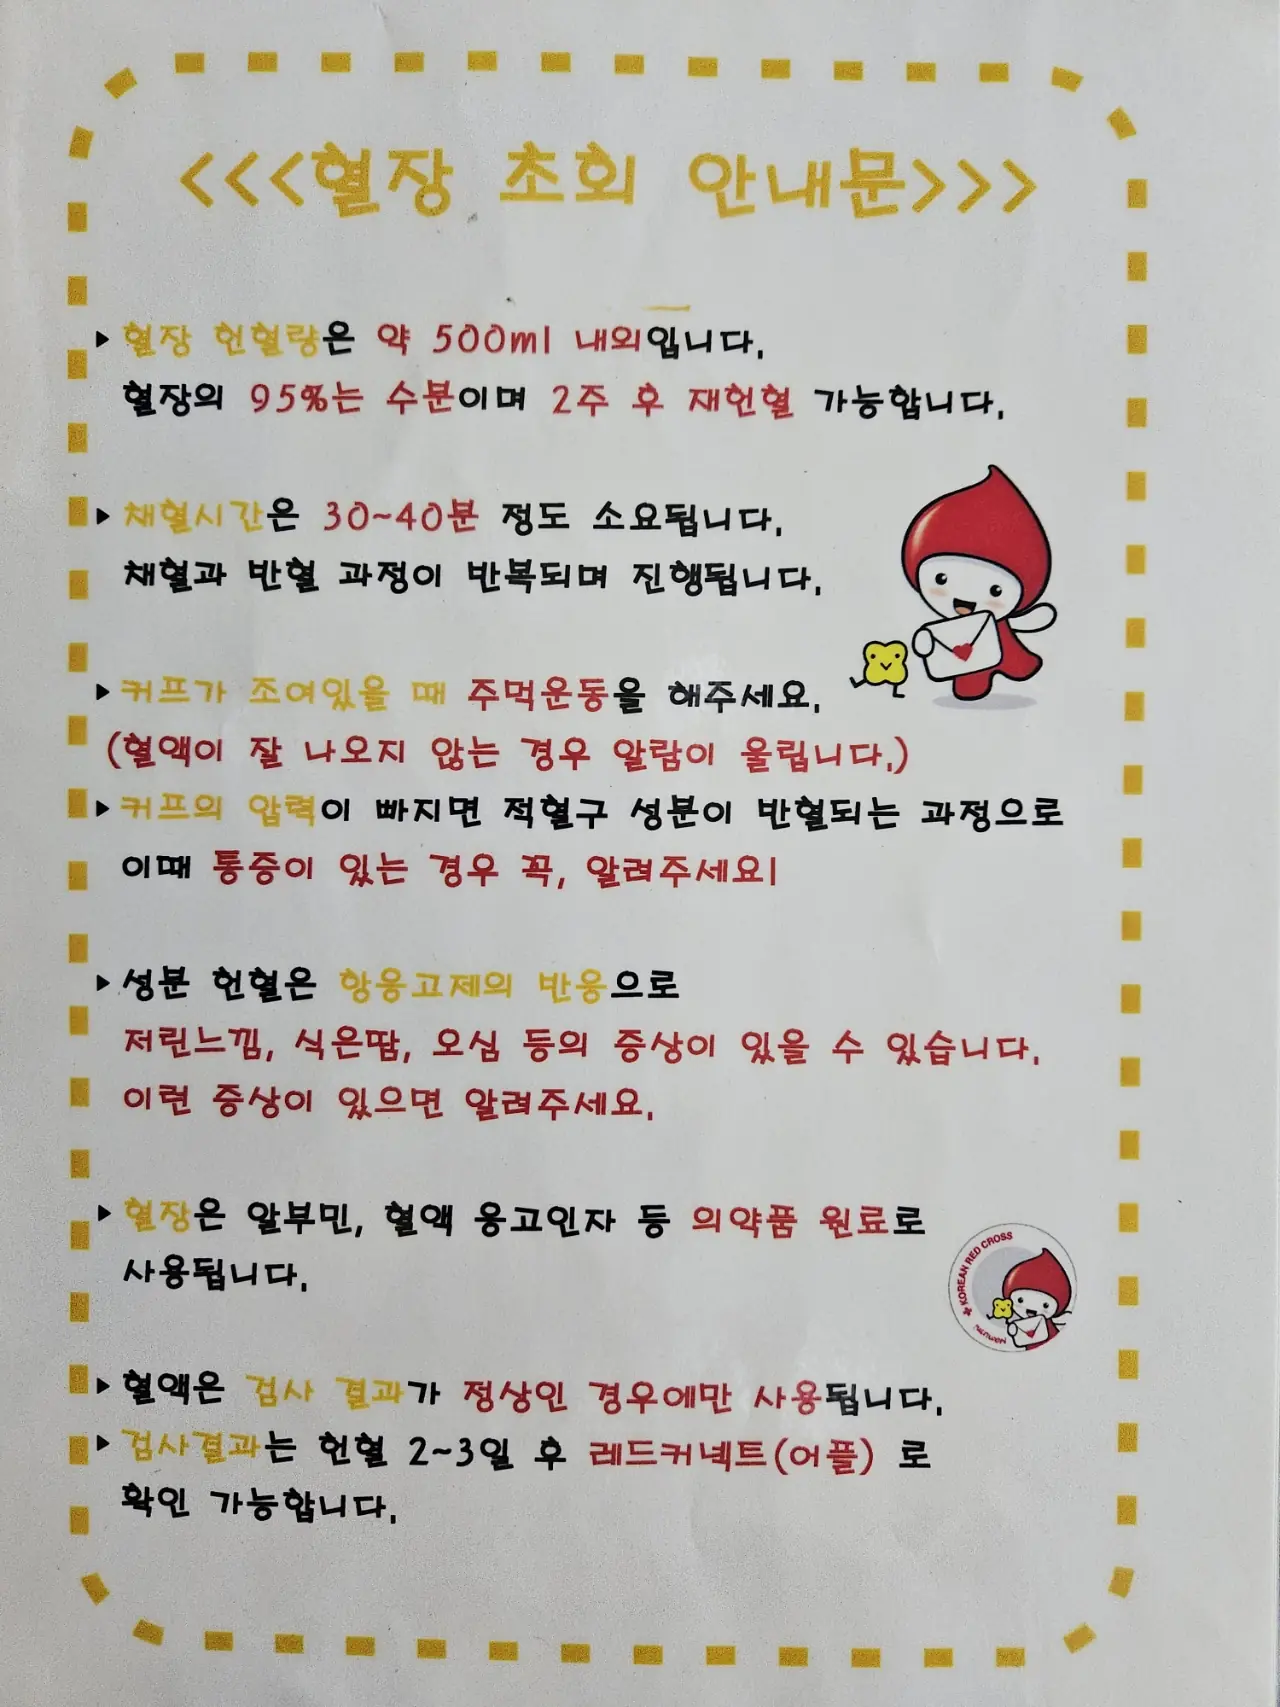 <<<혈장 초회 안내문>>>
▶ 혈장 헌혈량은 약 500ml 내외입니다.
혈장의 95%는 수분이며 2주 후 재헌혈 가능합니다.
▶ 채혈시간은 30~40분 정도 소요됩니다.
채혈과 반혈 과정이 반복되며 진행됩니다.
▶ 커프가 조여있을 때 주먹운동을 해주세요.
(혈액이 잘 나오지 않는 경우 알람이 울립니다.)
▶ 커프의 압력이 빠지면 적혈구 성분이 반혈되는 과정으로
이때 통증이 있는 경우 꼭, 알려주세요!
▶ 성분 헌혈은 항응고제의 반응으로
저린느낌, 식은땀, 오심 등의 증상이 있을 수 있습니다.
이런 증상이 있으면 알려주세요.
▶ 혈장은 알부민, 혈액 응고인자 등 의약품 원료로
사용됩니다.
KOREAN RED CROSS
▶ 혈액은 검사 결과가 정상인 경우에만 사용됩니다.
▶ 검사결과는 헌혈 2~3일 후 레드커넥트(어플) 로
확인 가능합니다.